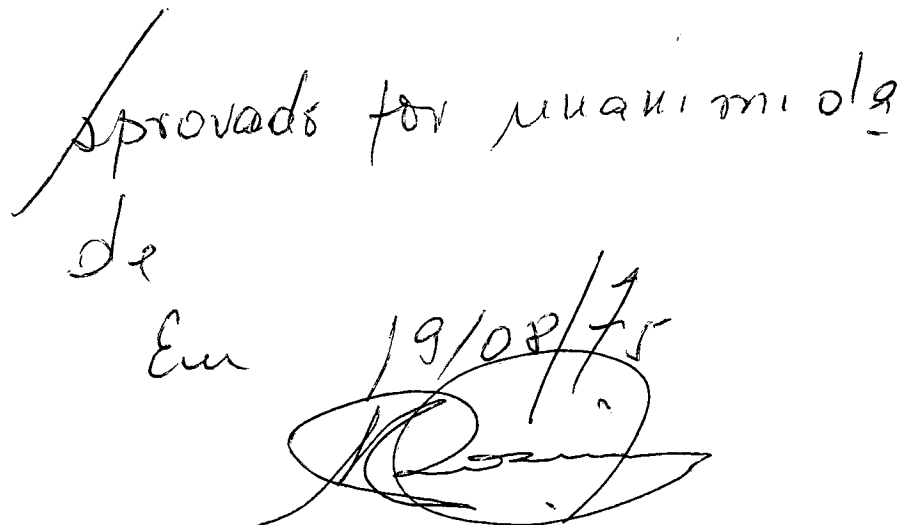 Aprovado por unanimida
de
Em 19/08/75